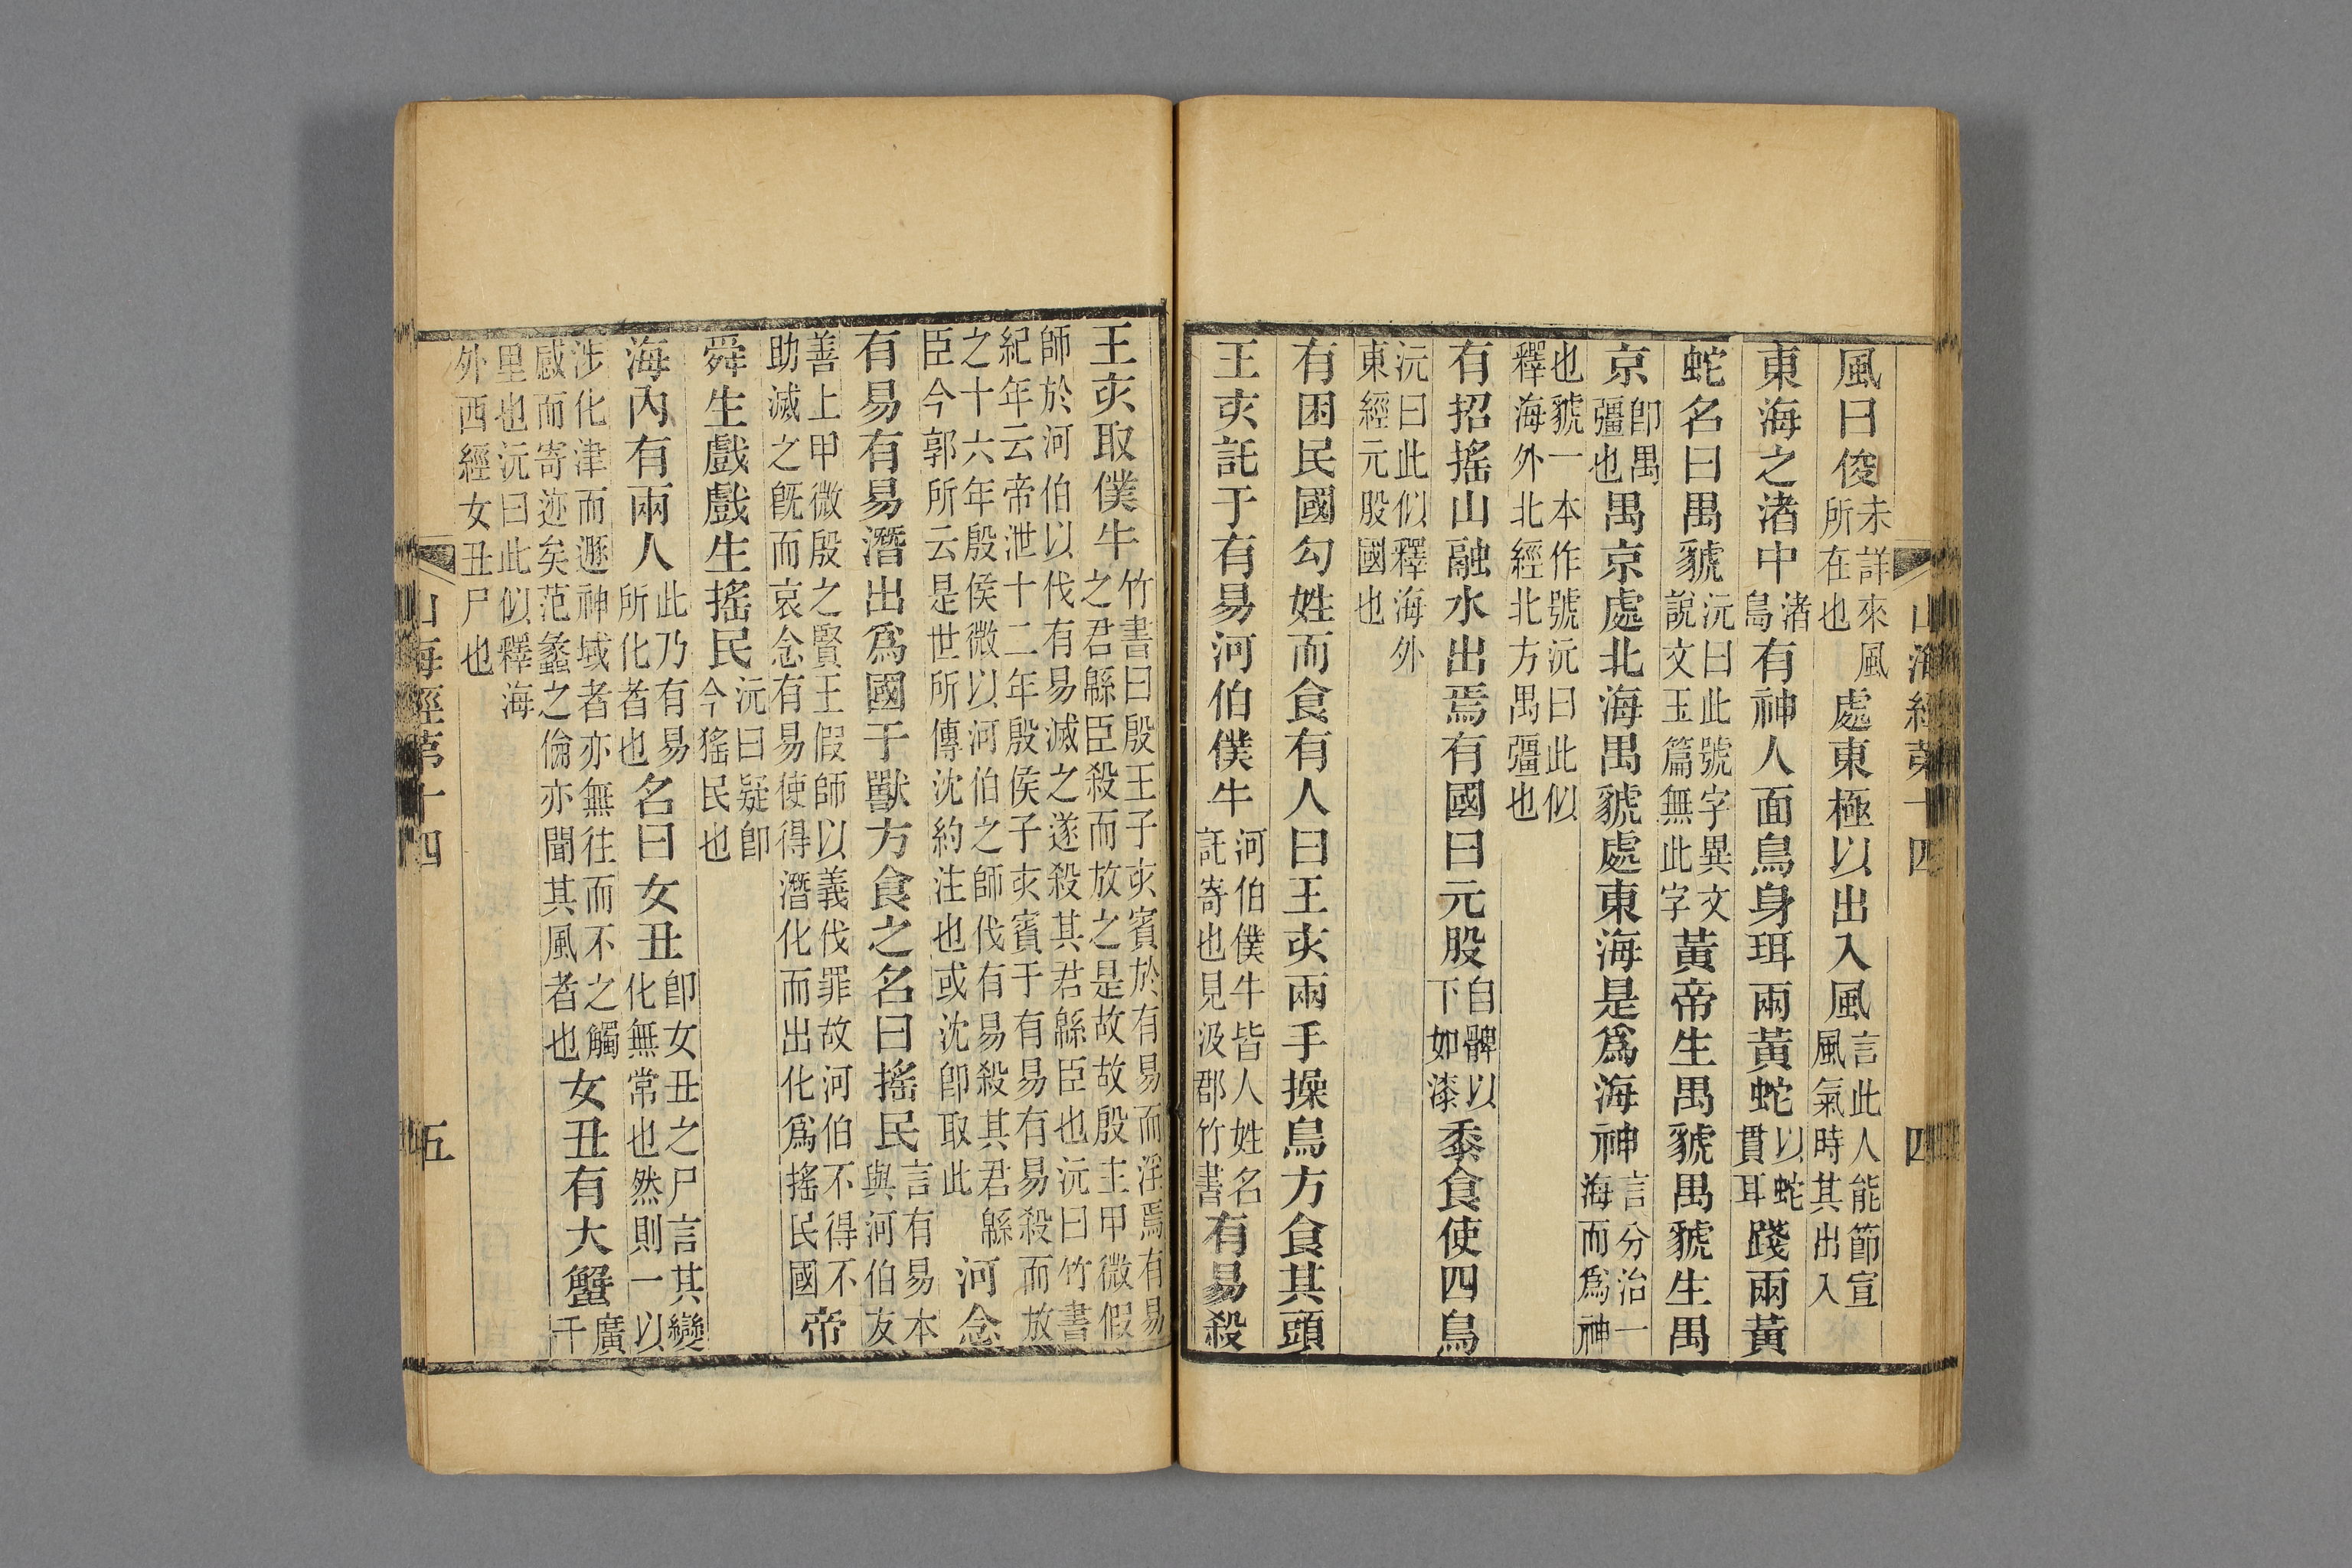 山海經第十四 四
風曰俊未詳來風所在也處東極以出入風言此人能節宣風氣時其出入
東海之渚中渚島有神人面鳥身珥兩黃蛇以蛇貫耳踐兩黃
蛇名曰禺䝞沅曰此號字異文說文玉篇無此字黃帝生禺䝞禺䝞生禺
京卽禺彊也禺京處北海禺䝞處東海是爲海神言分治一海而爲神
也䝞一本作號沅曰此似釋海外北經北方禺彊也
有招搖山融水出焉有國曰元股自髀以下如漆黍食使四鳥
沅曰此似釋海外東經元股國也
有困民國勾姓而食有人曰王亥兩手操鳥方食其頭
王亥託于有易河伯僕牛河伯僕牛皆人姓名託寄也見汲郡竹書有易殺
王亥取僕牛竹書曰殷王子亥賓於有易而淫焉有易之君緜臣殺而放之是故故殷主甲微假
師於河伯以伐有易滅之遂殺其君緜臣也沅曰竹書紀年云帝泄十二年殷侯子亥賓于有易有易殺而放
之十六年殷侯微以河伯之師伐有易殺其君緜臣今郭所云是世所傳沈約注也或沈卽取此河念
有易有易潛出爲國于獸方食之名曰搖民言有易本與河伯友
善上甲微殷之賢王假師以義伐罪故河伯不得不助滅之旣而哀念有易使得潛化而出化爲搖民國帝
舜生戲戲生搖民沅曰疑卽今猺民也
海內有兩人此乃有易所化者也名曰女丑卽女丑之尸言其變化無常也然則一以
涉化津而遯神域者亦無往而不之觸感而寄迹矣范蠡之倫亦聞其風者也女丑有大蟹廣千
里也沅曰此似釋海外西經女丑尸也
山海經第十四 五